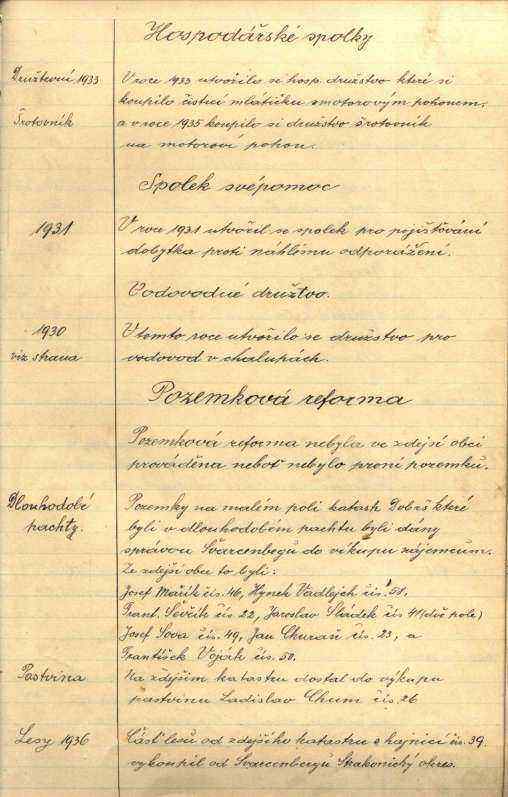 Hospodářské spolky
Družtevní 1933
V roce 1933 utvořilo se hosp. družstvo které si
koupilo čistící mlátičku s motorovým pohonem,
Šrotovník
a v roce 1935 koupilo si družstvo šrotovník
na motoroví pohon.
Spolek svépomoc
1931
V roce 1931 utvořil se spolek pro pojišťování
dobytka proti náhlému odporážení.
Vodovodné družtvo.
1930
V tomto roce utvořilo se družstvo pro
viz strana
vodovod v chalupách.
Pozemková reforma
Pozemková reforma nebyla ve zdejší obci
prováděna neboť nebylo proní pozemků.
Dlouhodobé
pachty.
Pozemky na malém poli katastr Dobrš které
byli v dlouhodobém pachtu byli dány
správou Švarcenbegů do víkupu zájemcům.
Ze zdejší obce to byli:
Josef Mařík čís. 46, Hynek Vadlejch čís. 51.
Frant. Ševčík čís 22, Jaroslav Sládek čís 41 (dvě pole)
Josef Sova čís. 49, Jan Churaň čís. 23, a
František Voják čís. 50.
Pastvina
Na zdejším katastru dostal do výkupu
pastvinu Ladislav Chum čís. 26
Lesy 1936
Část lesů od zdejšího katastru s hajnicí čís. 39.
vykoupil od Švarcenbergů Strakonický okres.